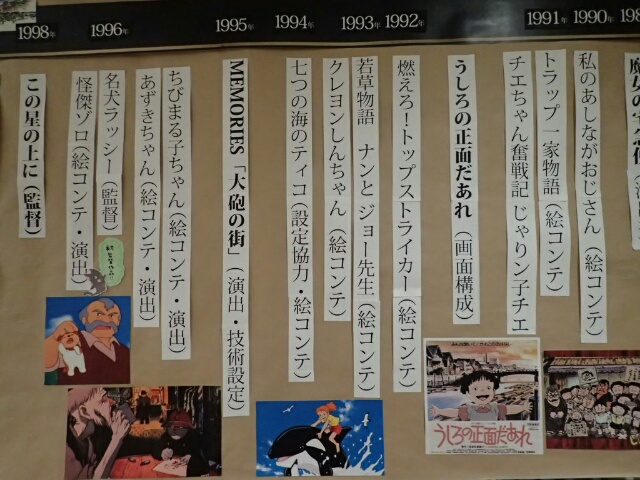 1998年
1996年
1995年
1994年
1993年
1992年
1991年
1990年
私のあしながおじさん（絵コンテ）
トラップ一家物語（絵コンテ）
チエちゃん奮戦記 じゃりン子チエ
うしろの正面だあれ（画面構成）
燃えろ！トップストライカー（絵コンテ）
若草物語 ナンとジョー先生（絵コンテ）
クレヨンしんちゃん（絵コンテ）
七つの海のティコ（設定協力・絵コンテ）
MEMORIES「大砲の街」（演出・技術設定）
ちびまる子ちゃん（絵コンテ・演出）
あずきちゃん（絵コンテ・演出）
名犬ラッシー（監督）
怪傑ゾロ（絵コンテ・演出）
この星の上に（監督）
うしろの正面だあれ